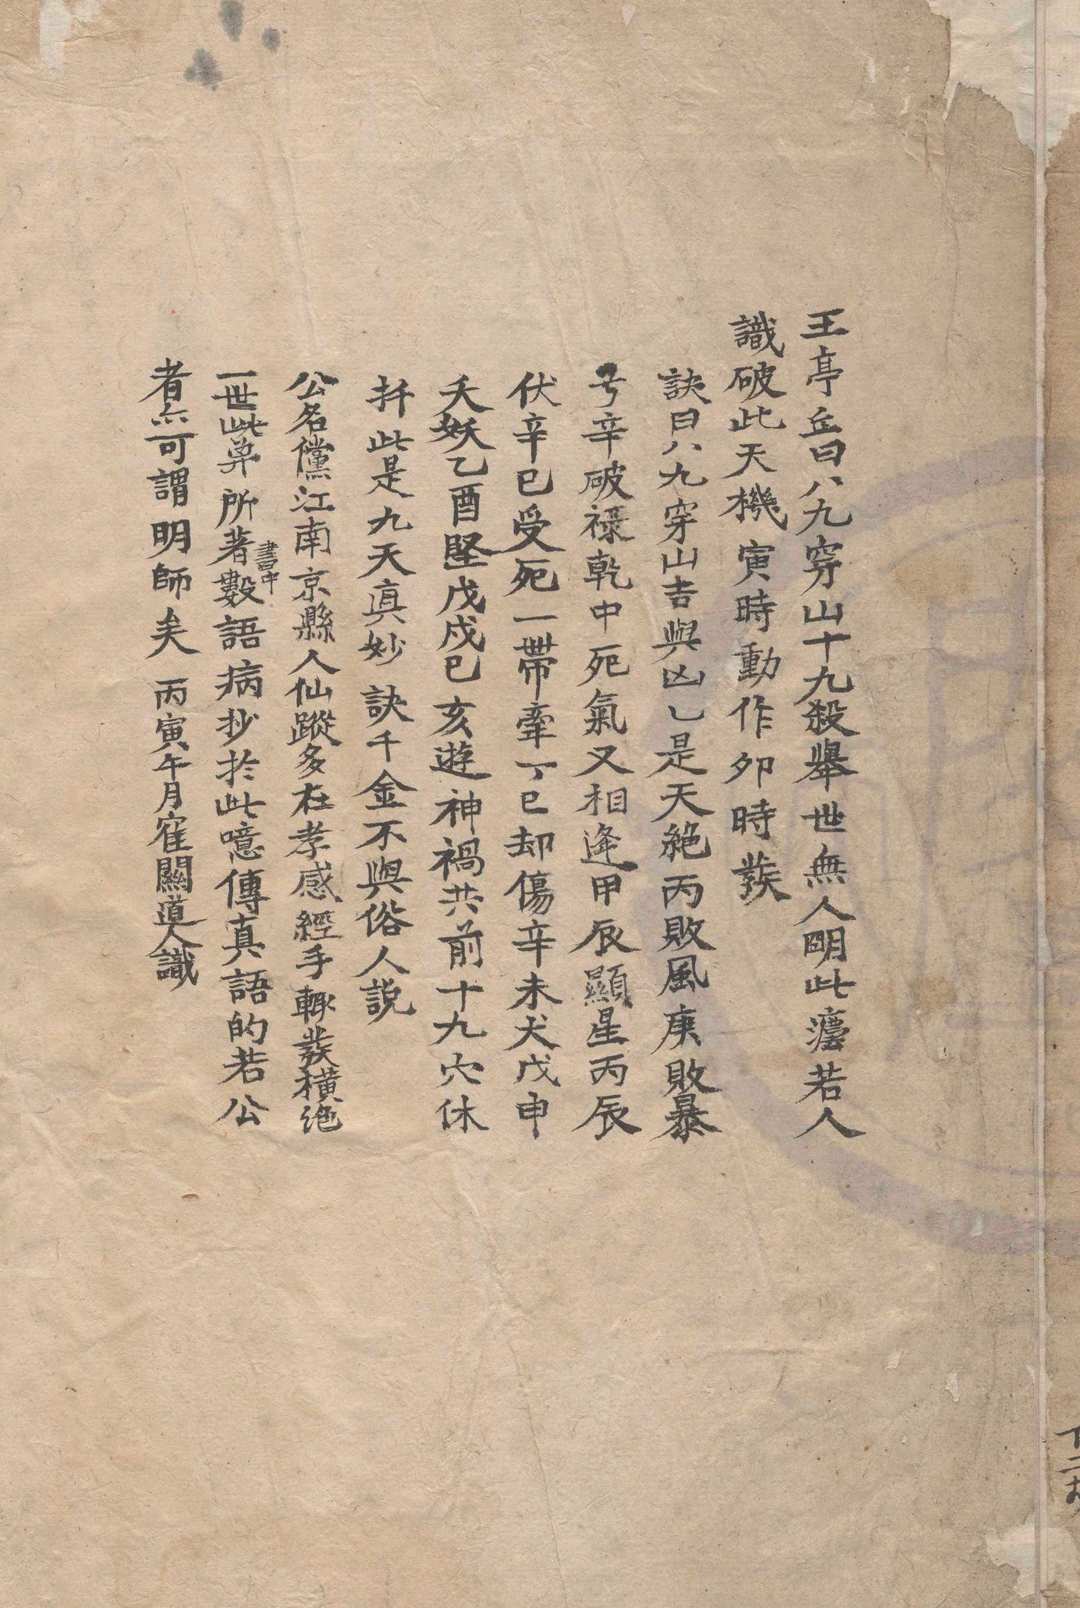 王亭丘曰八九穿山十九殺舉世無人明此瀘若人
識破此天機寅時動作夘時發
訣曰八九穿山吉與凶乙是天絕丙敗風庚敗暴
号辛破祿乾中死氣又相逢甲辰顯星丙辰
伏辛巳受死一帶牽丁巳却傷辛未犬戊申
夭妖乙酉堅戊戍已亥遊神禍共前十九穴休
扦此是九天真妙訣千金不與俗人説
公名儻江南京縣人仙蹤多在孝感經手輙發橫絶
一世此葬所著書中數語病抄於此噫傳真語的若公
者亦可謂明師矣 丙寅午月寉關道人識
下二